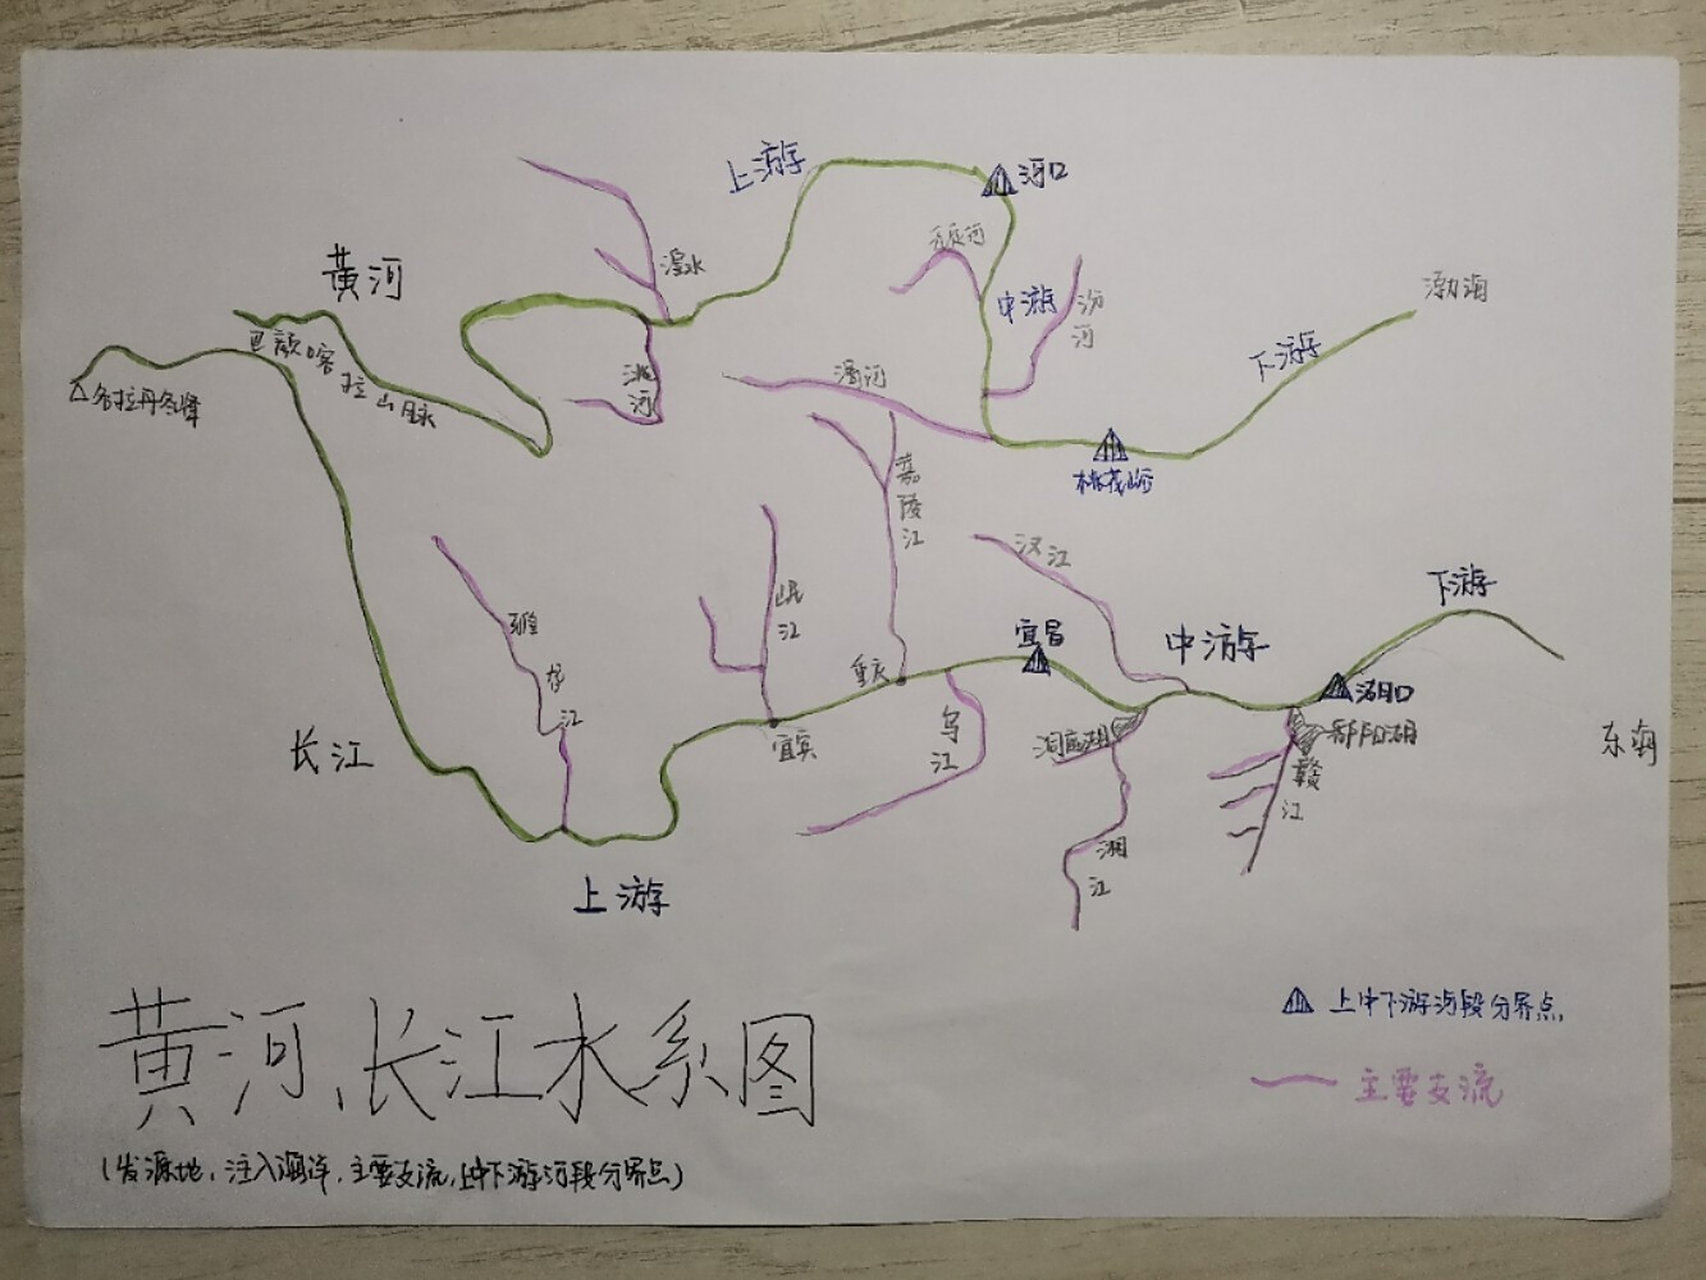 上游
河口
无定河
湟水
黄河
中游
汾河
渤海
巴颜喀拉山脉
下游
各拉丹冬峰
洮河
渭河
桃花峪
嘉陵江
汉江
下游
岷江
雅砻江
宜昌
中游
重庆
湖口
乌江
洞庭湖
鄱阳湖
东海
长江
宜宾
赣江
湘江
上游
上中下游河段分界点
黄河、长江水系图
主要支流
(发源地,注入海洋,主要支流,上中下游河段分界点)